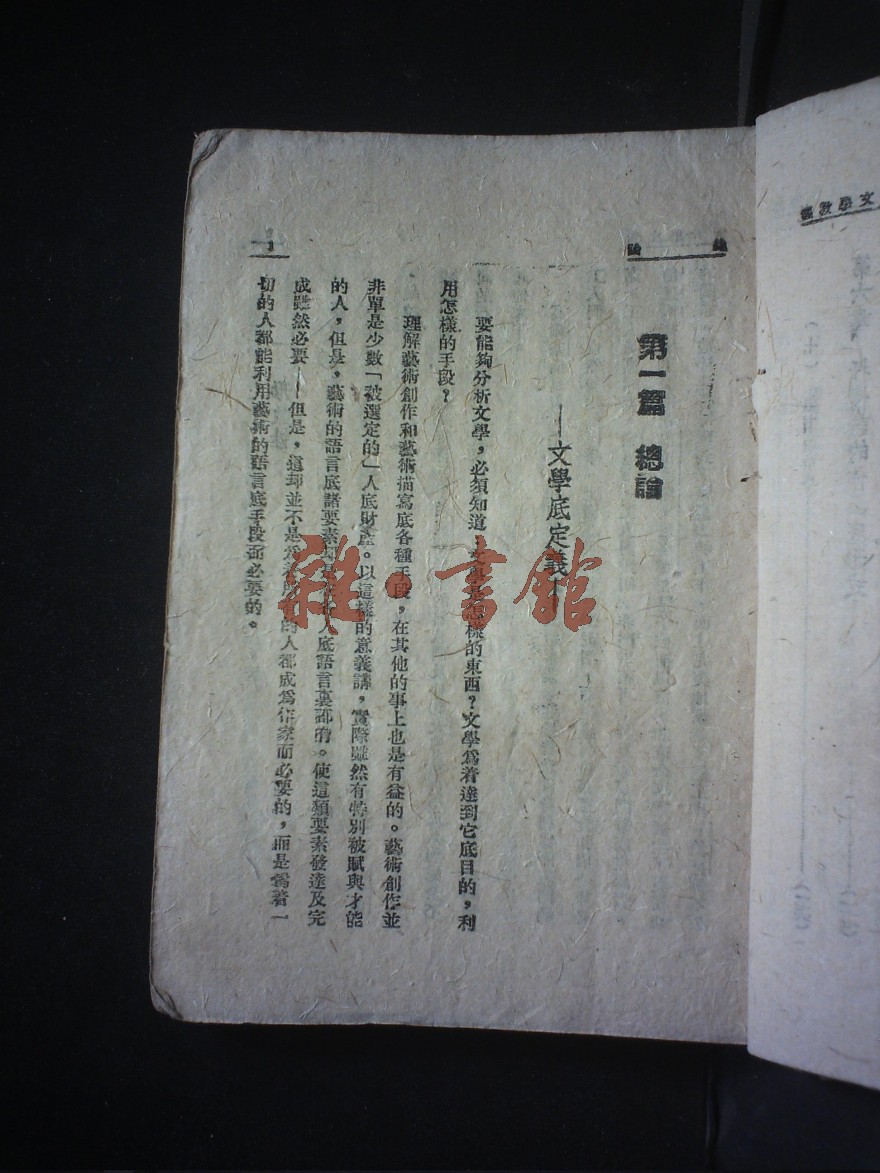 總論
第一篇 總論
——文學底定義
要能夠分析文學，必須知道：文學是怎樣的東西？文學爲着達到它底目的，利
用怎樣的手段？
理解藝術創作和藝術描寫底各種手段，在其他的事上也是有益的。藝術創作並
非單是少數「被選定的」人底財產。以這樣的意義講，實際雖然有特別被賦與才能
的人，但是，藝術的語言底諸要素人底語言裏都有。使這類要素發達及完
成雖然必要——但是，這却並不是爲着所有的人都成爲作家而必要的，而是爲着一
切的人都能利用藝術的語言底手段而必要的。
一
文學教
雜·書館